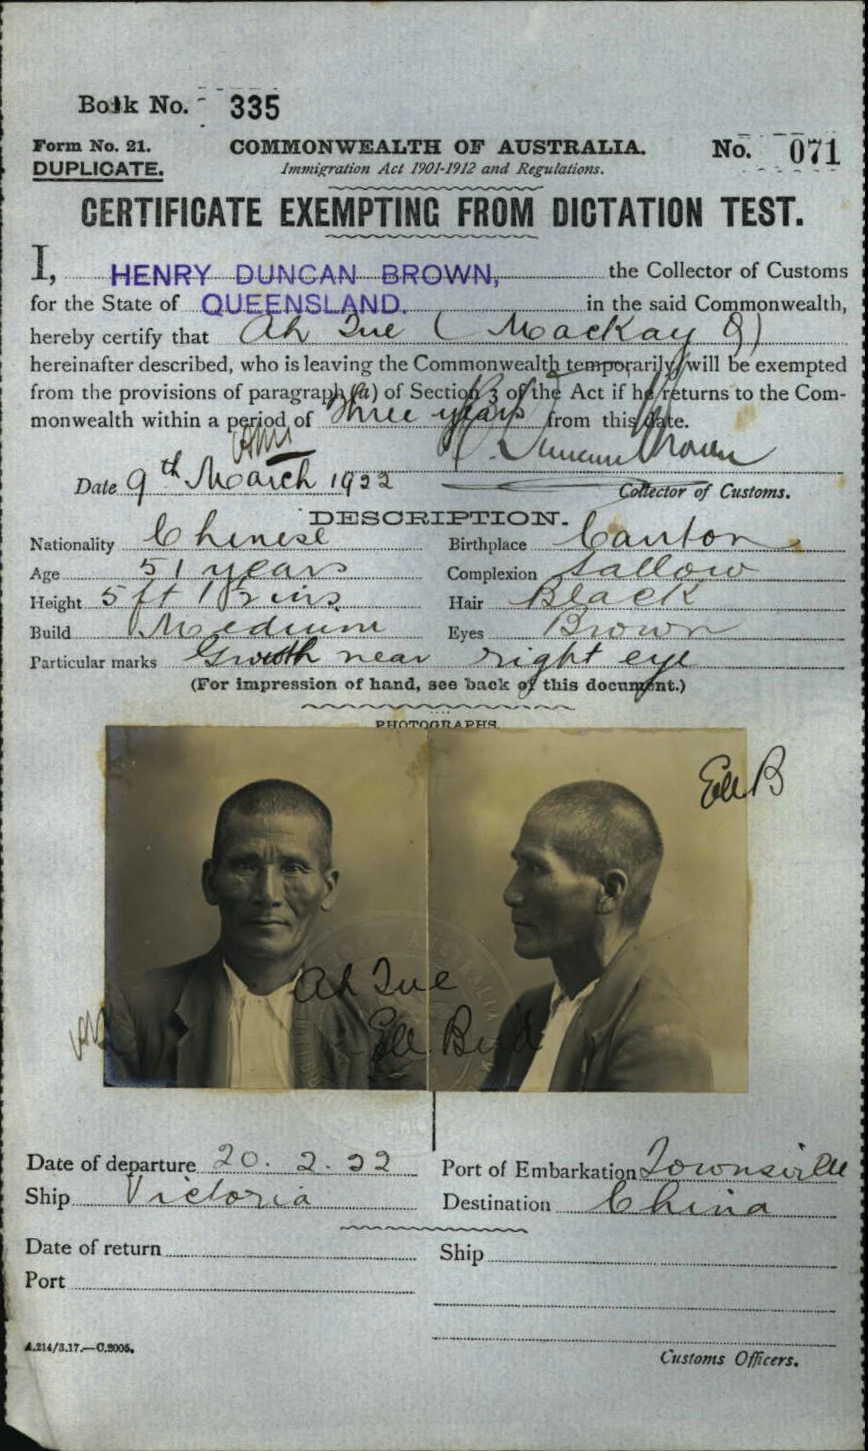 Book No. 335
Form No. 21.
DUPLICATE.
COMMONWEALTH OF AUSTRALIA.
Immigration Act 1901-1912 and Regulations.
No. 071
CERTIFICATE EXEMPTING FROM DICTATION TEST.
I, HENRY DUNCAN BROWN, the Collector of Customs
for the State of QUEENSLAND. in the said Commonwealth,
hereby certify that Ah Sue (Mackay Q)
hereinafter described, who is leaving the Commonwealth temporarily, will be exempted
from the provisions of paragraph (a) of Section 3 of the Act if he returns to the Com-
monwealth within a period of Three years from this date.
H. Duncan Brown
Date 9th March 1922
Collector of Customs.
DESCRIPTION.
Nationality Chinese Birthplace Canton
Age 51 years Complexion Sallow
Height 5 ft 1½ ins Hair Black
Build Medium Eyes Brown
Particular marks Growth near right eye
(For impression of hand, see back of this document.)
PHOTOGRAPHS.
Ah Sue
Date of departure 20. 2. 22 Port of Embarkation Townsville
Ship Victoria Destination China
Date of return Ship
Port
A.214/3.17.—C.2005.
Customs Officers.